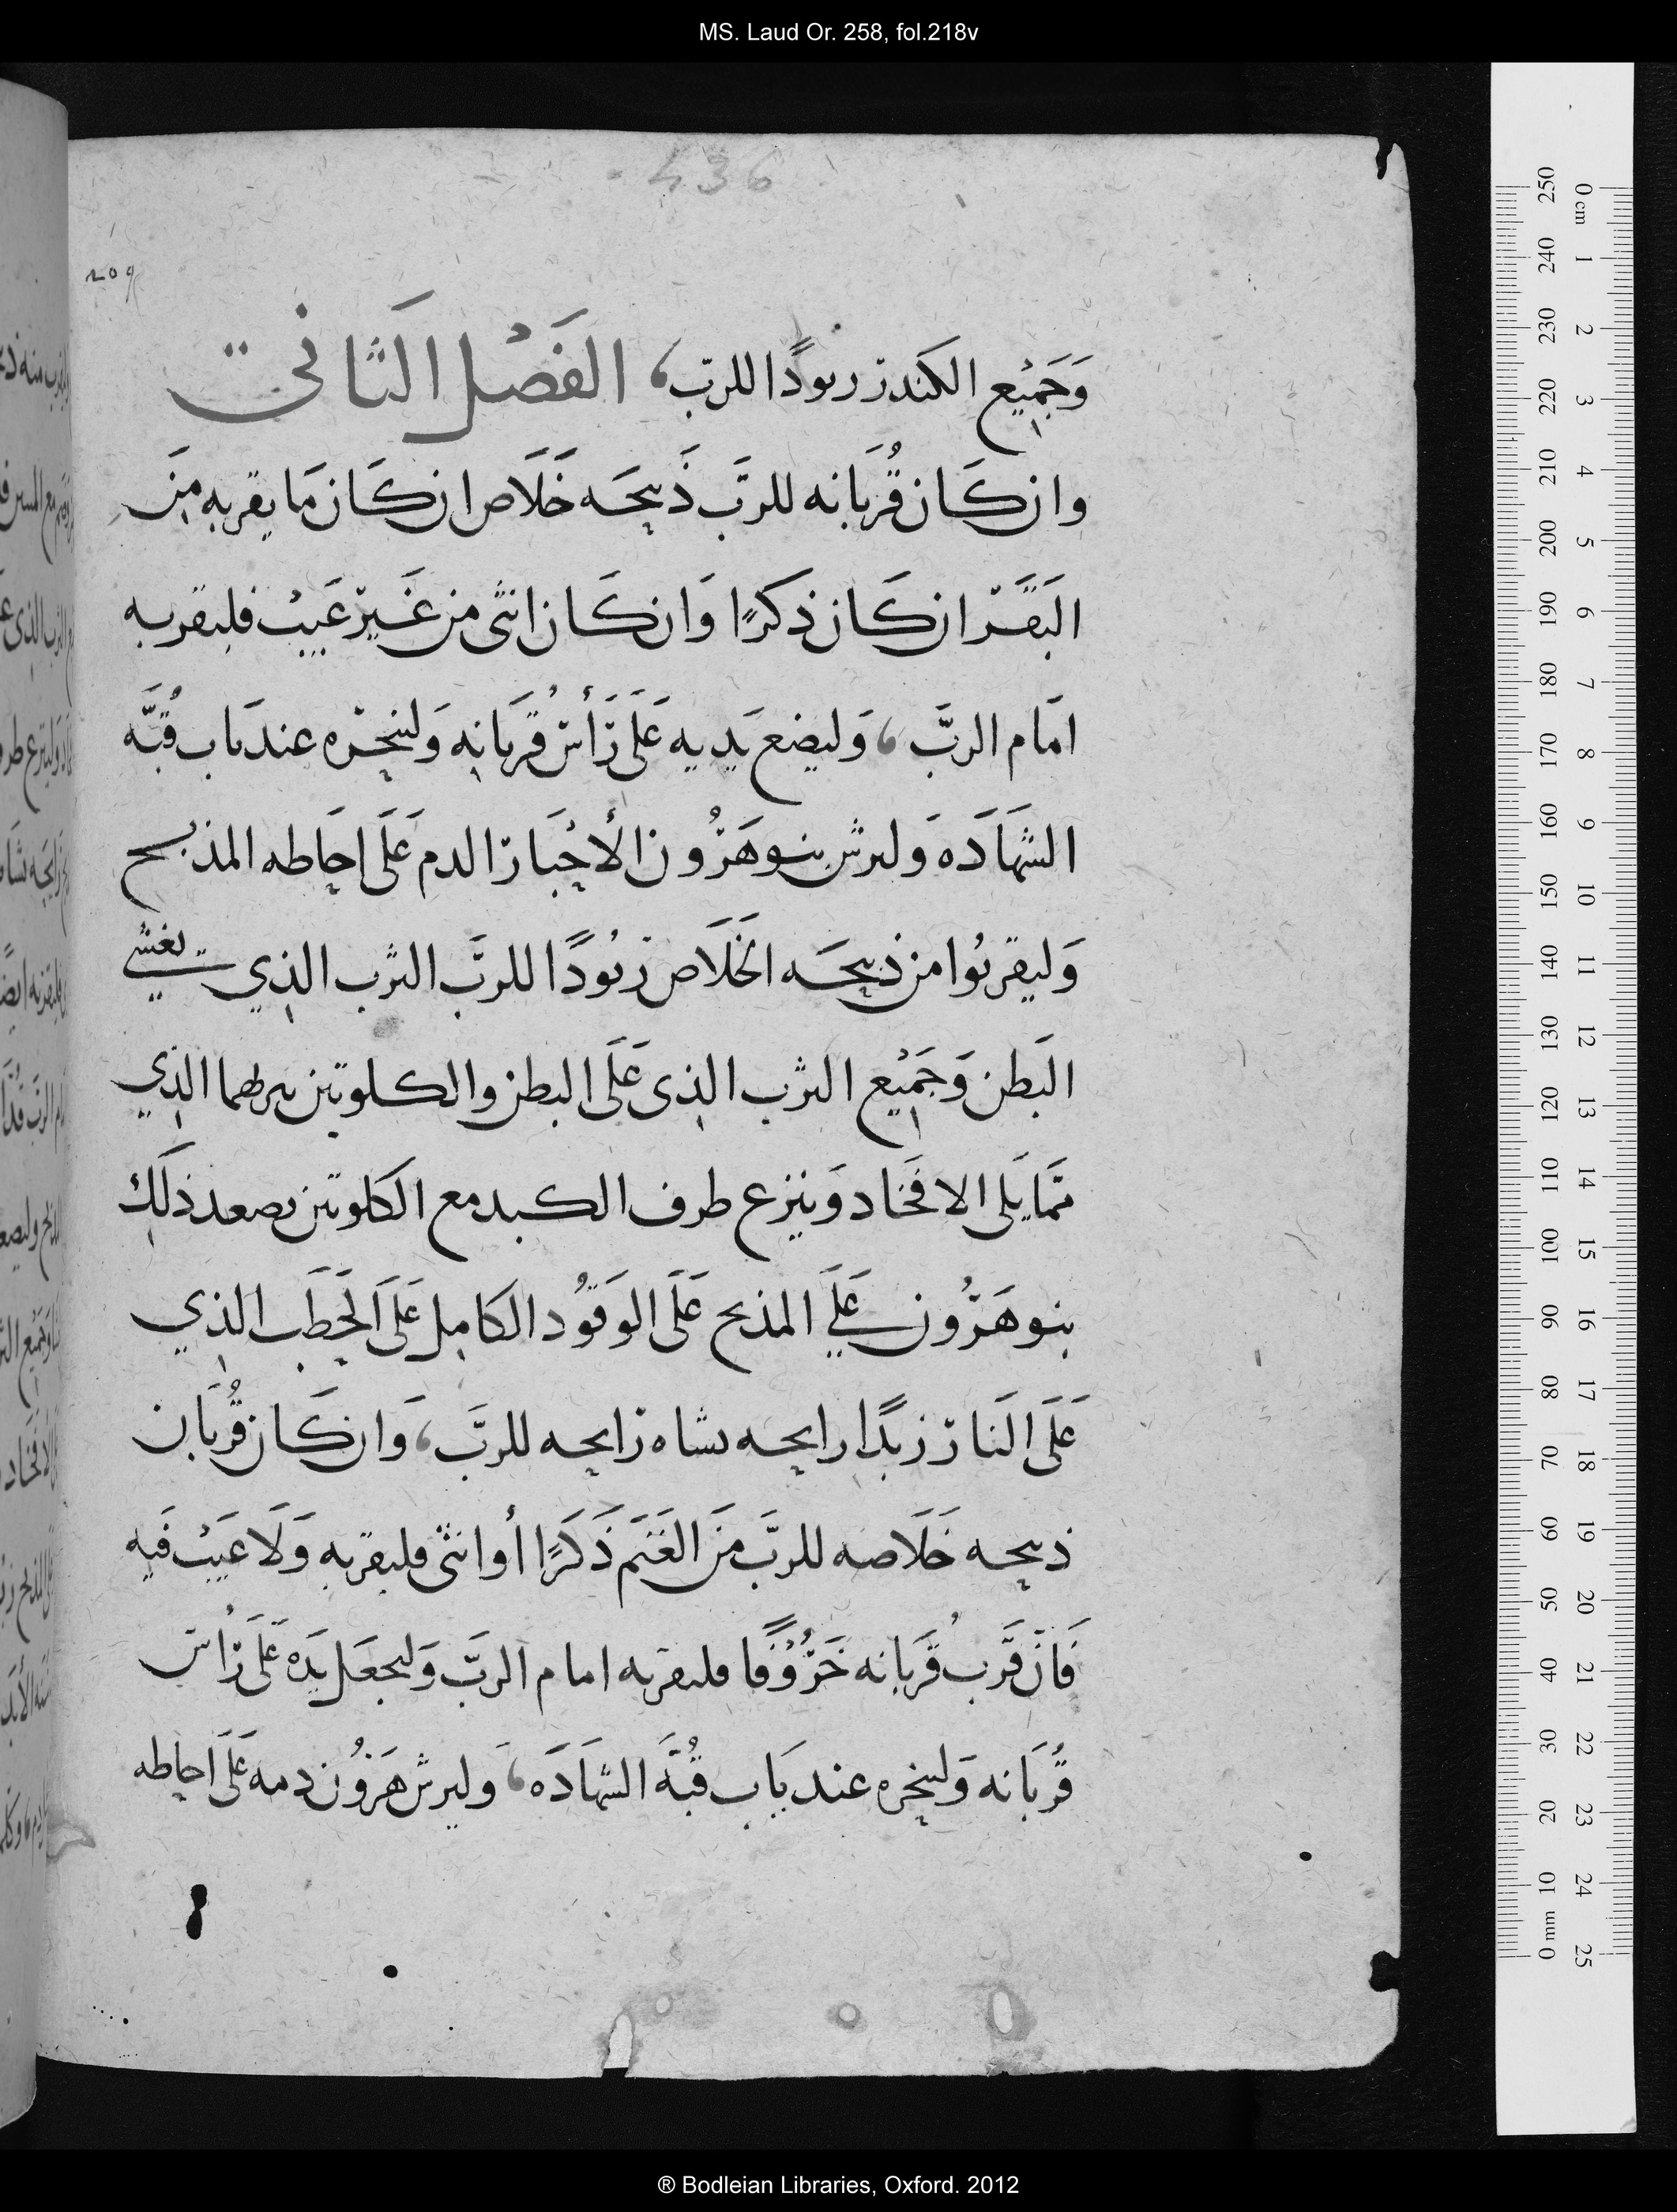 MS. Laud Or. 258, fol.218v
436
209
وَجَمِيْع الكندر ربودًا للربّ، الفَصْل الَثاني
وان كَان قُربَانه للرَّب ذَبيحَه خَلَاص ان كَان مَا يقربه مِنَ
البَقَر ان كَان ذكرًا وَان كَان انثى من غَير عَيبْ فليقربه
امَام الربَّ، وَليضع يَديه عَلَى رَأسْ قُربَانِه وَلينحره عند باب قُبَّه
الشهَادَه وَليرش بنو هَرُون الأحْبَار الدم عَلَى احَاطه المذبح
وَليقربُوا من ذبيحَه الخَلَاص ربُودًا للربَّ الثرب الذي يغشي
البَطن وَجَمِيْع الثرب الذي عَلَى البطن والكلوتين ثربهما الذي
ممَّا يَلى الافخَاد وَينزع طرف الكبد مع الكلوتين يصعد ذلك
بنو هَرُون عَلي المذبح عَلَى الوَقوُد الكامِل عَلَى الحَطَب الذي
عَلَى الَنار زبدًا رايحه نشاه رايحه للربَّ، وَان كَان قُربَان
ذبيحه خَلَاصه للربَّ مَنَ الغَنَم ذَكَرًا أو انثى فليقربه وَلَا عَيبْ فَيه
فَان قَرب قُربَانه خَرُوفًا فليقربه امام الربَّ وَليجعَل يَدَه عَلَى رأس
قُربَانه وَلينحره عند بَاب قبَّه الشهَادَه، وليرش هَرُون دمه عَلَى احاطه
250 240 230 220 210 200 190 180 170 160 150 140 130 120 110 100 90 80 70 60 50 40 30 20 10 0 mm
0 cm 1 2 3 4 5 6 7 8 9 10 11 12 13 14 15 16 17 18 19 20 21 22 23 24 25
® Bodleian Libraries, Oxford. 2012